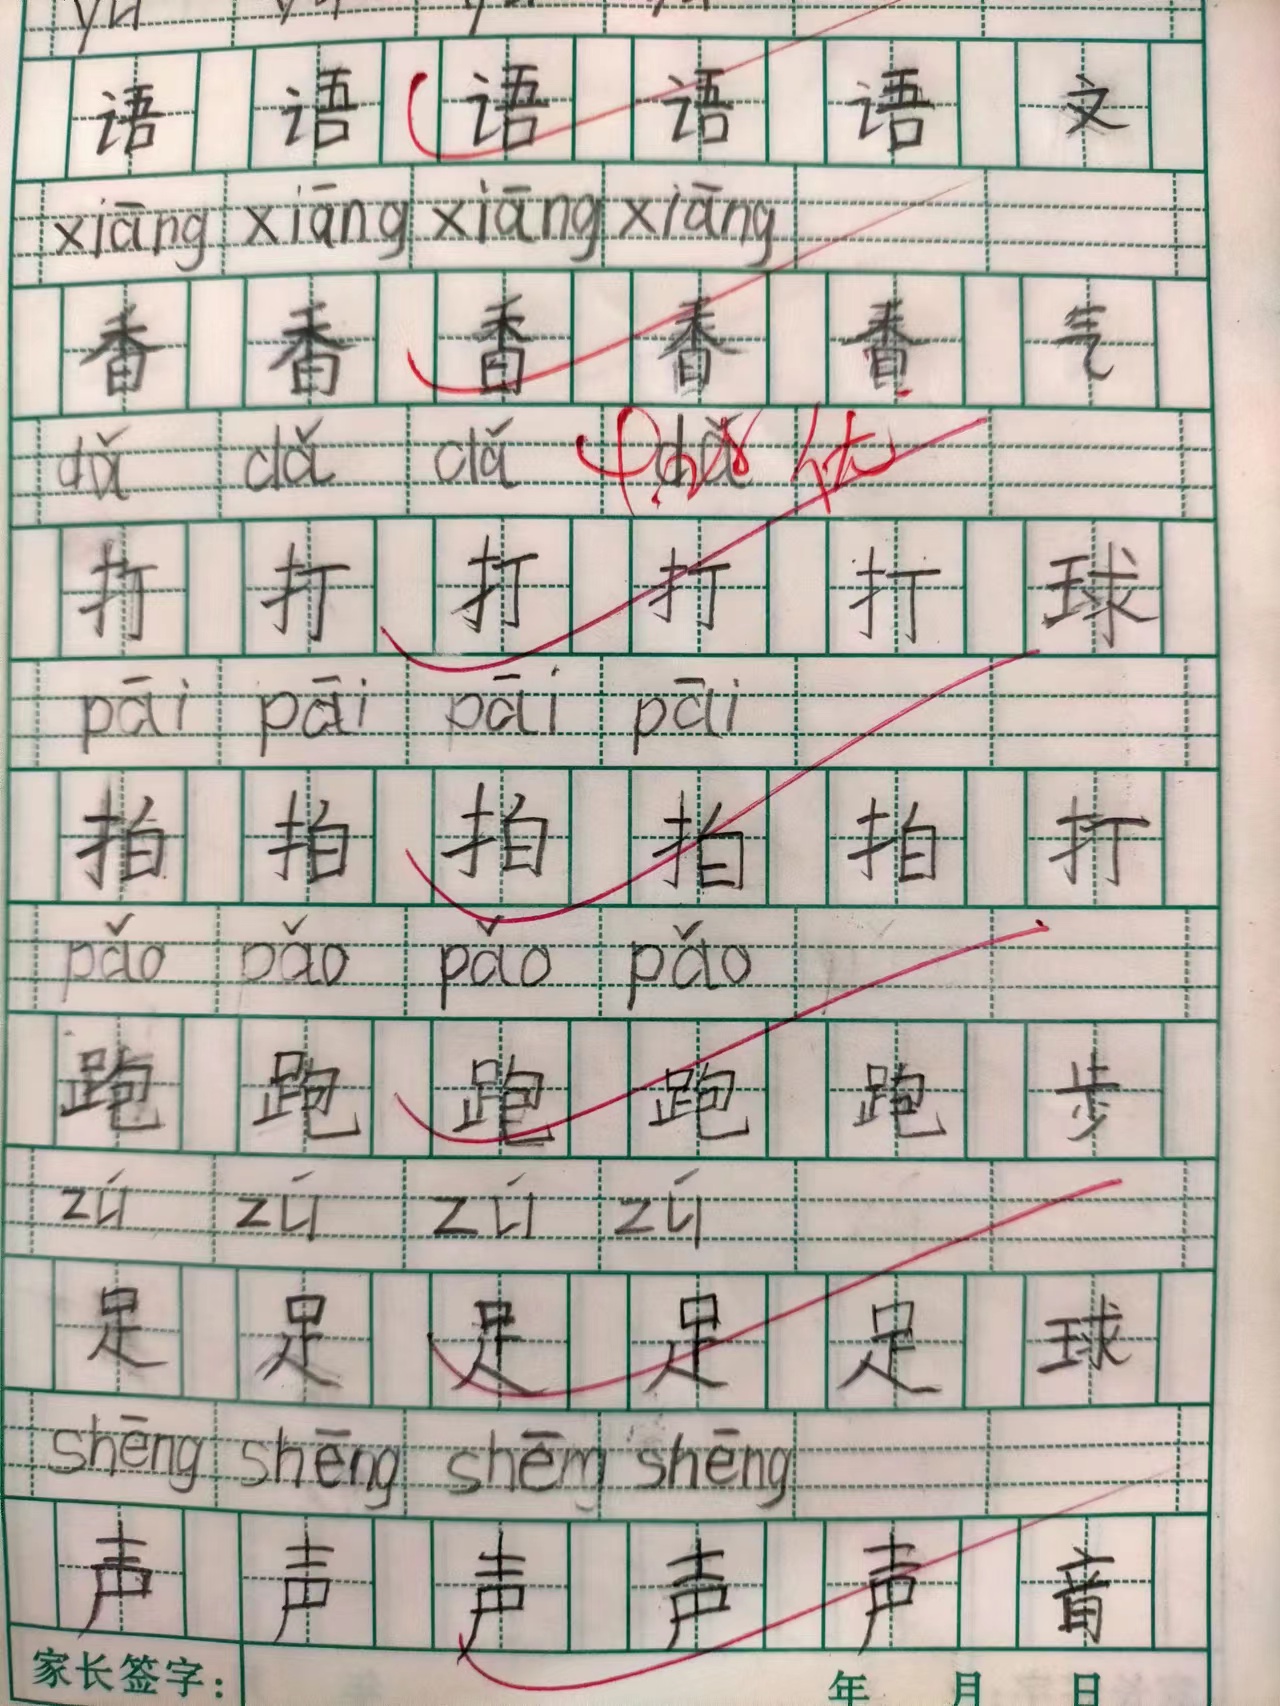 语 语 语 语 语 文
xiāng xiāng xiāng xiāng
香 香 香 香 香 气
dǎ dǎ dǎ dǎ
打 打 打 打 打 球
pāi pāi pāi pāi
拍 拍 拍 拍 拍 打
pǎo pǎo pǎo pǎo
跑 跑 跑 跑 跑 步
zú zú zú zú
足 足 足 足 足 球
shēng shēng shēng shēng
声 声 声 声 声 音
家长签字： 年 月 日